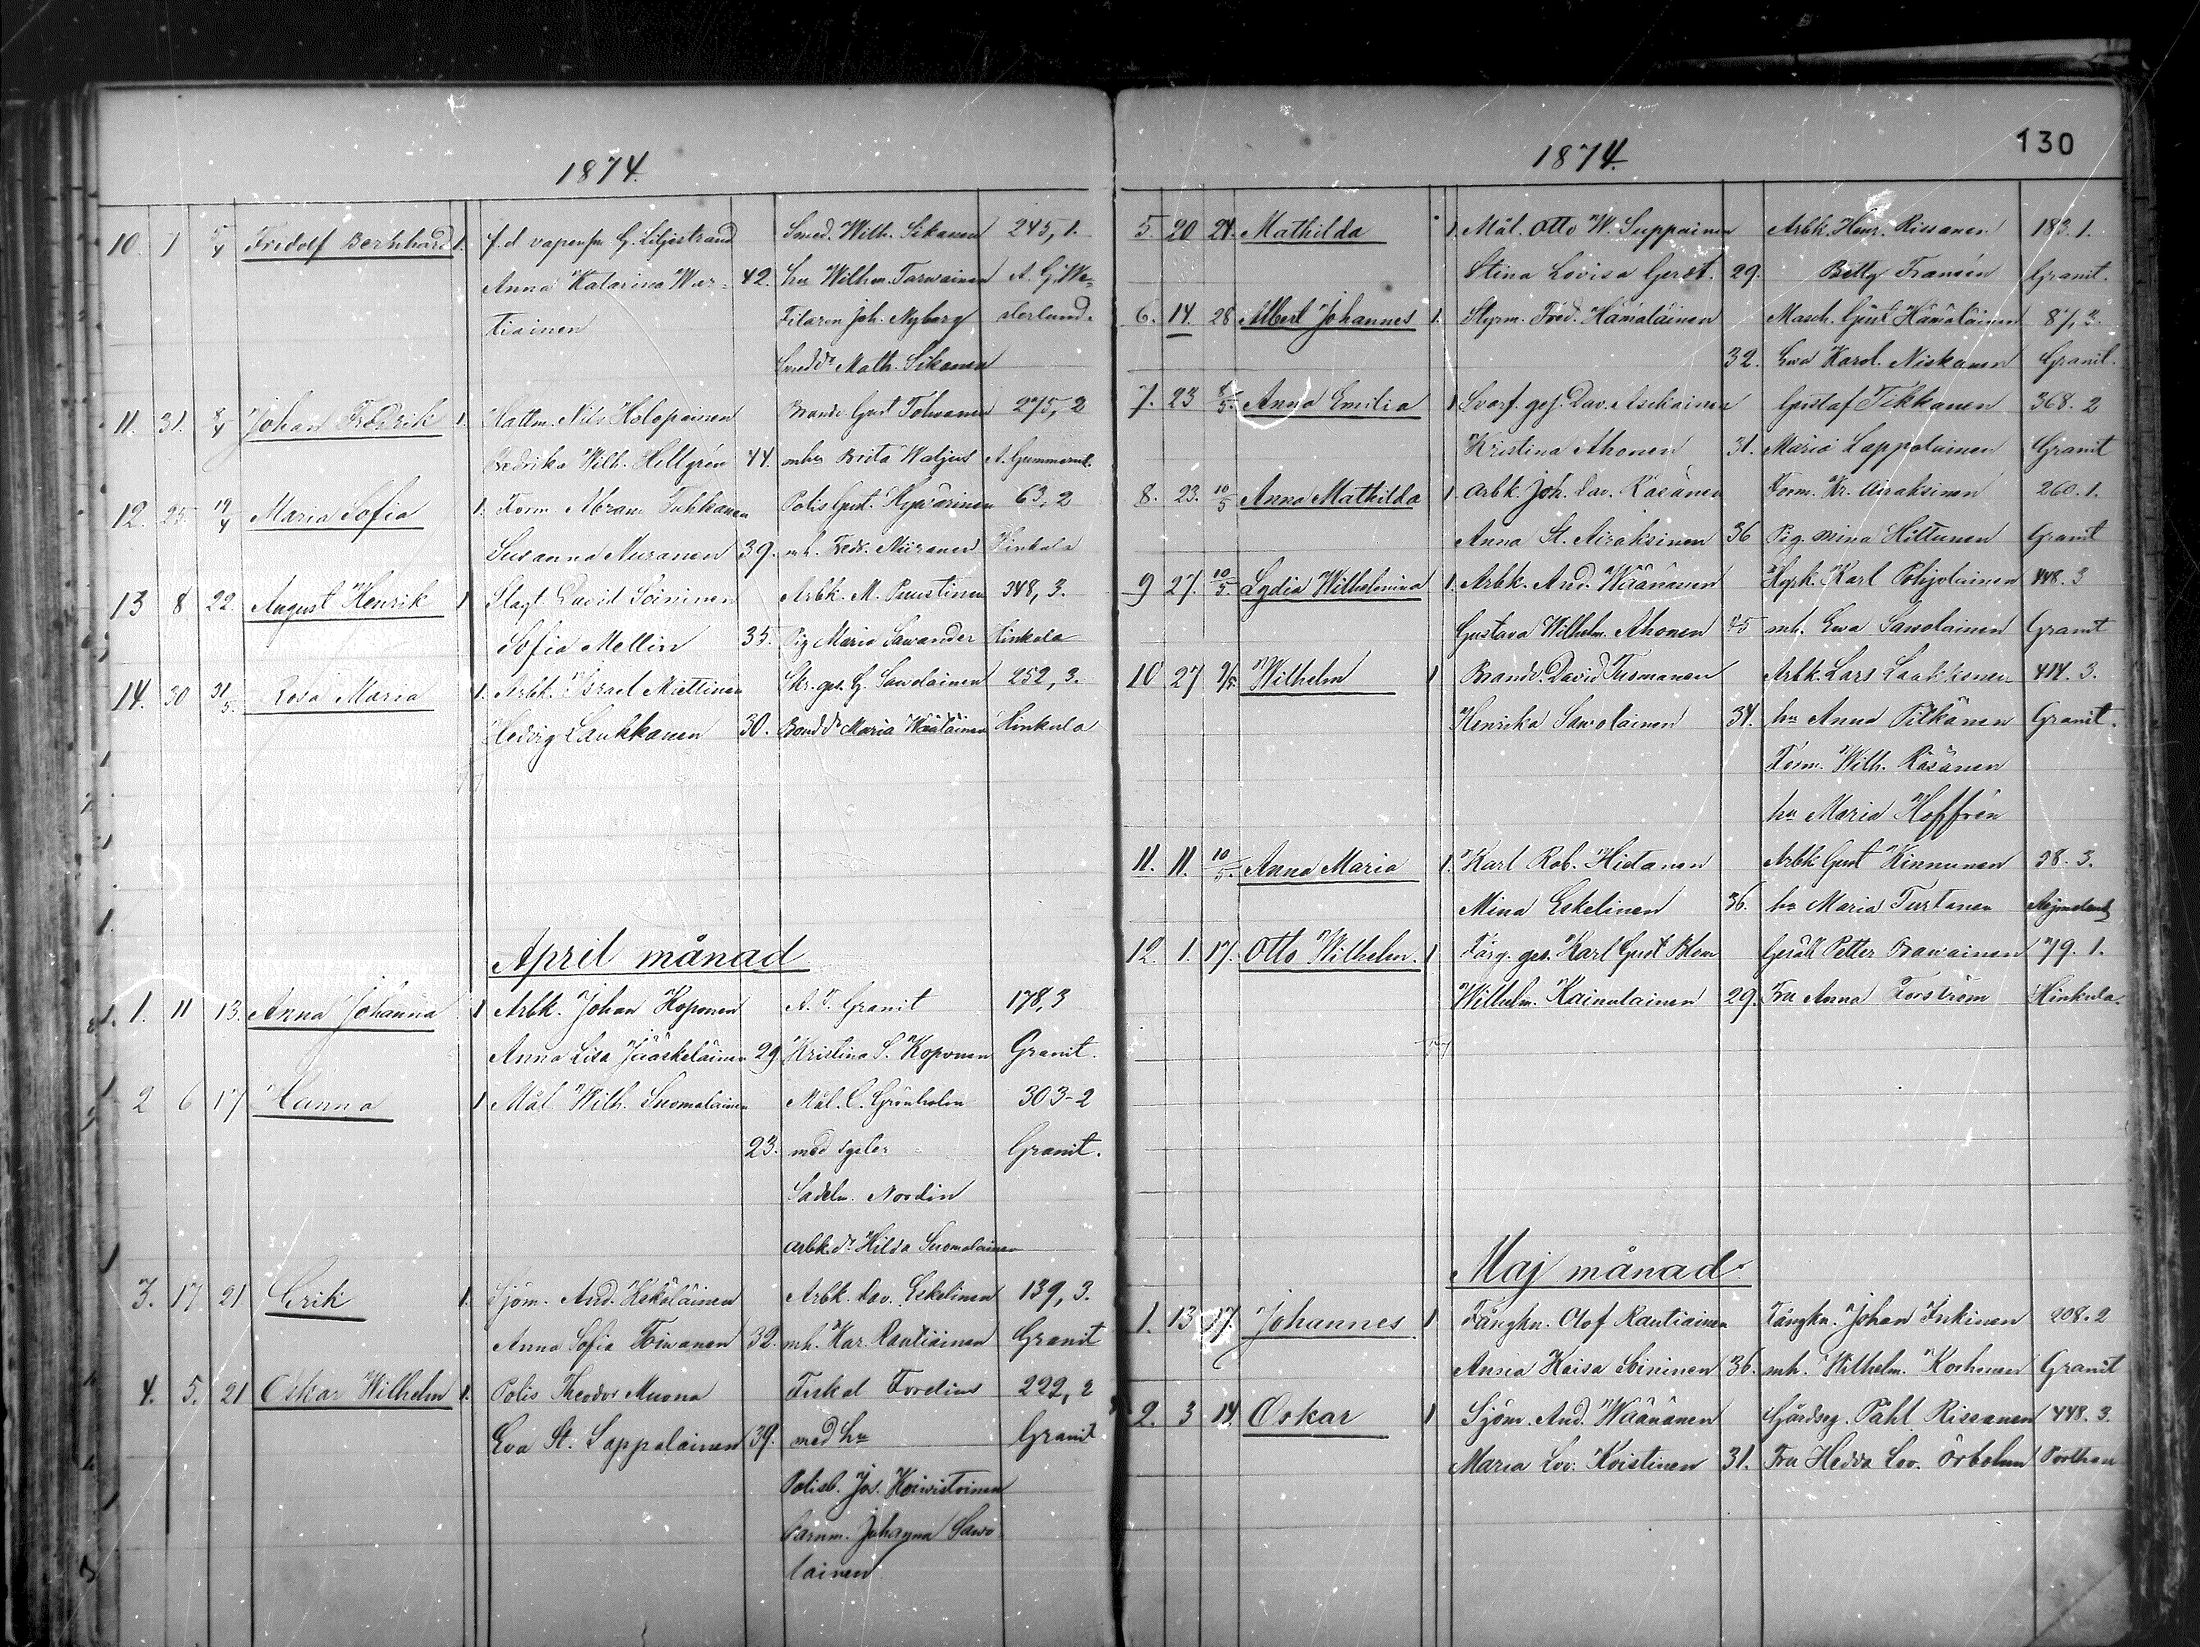 1874.
10. 1 5/4 Fridolf Bernhard 1. f.d. vapensm G. Liljestrand Smed. Wilh. Sikanen 245, 1.
Anna Katarina War- 42. hu Wilhm. Tarvainen A. G. We-
tiainen Filaren Joh. Nyberg sterlund.
Smedd. Math. Sikanen
11. 31. 6/4 Johan Fredrik 1. Hattm. Nils Holopainen Brandv Gust Tolvanen 275, 2
Fredrika Wilh. Hellgrén 44. mhu Brita Waljus A. Gummerul.
12. 25. 19/4 Maria Sofia 1. Form Abram Tuhkanen Polis Gust. Hyvärinen 63, 2
Susanna Muranen 39. mh. Fedr. Miiranen Hinkula
13 8 22. August Henrik 1 Slagt David Soininen Arbk. M. Puustinen 348, 3.
Sofia Mellin 35. Pig Maria Sawander Hinkula
14. 30 31/5. Rosa Maria 1. Arbk. Israel Miettinen Skr. ges. G. Sawolainen 252, 3.
Hedvig Laukkanen 30. Bondd. Maria Wäätäinen Hinkula
April månad
1. 11 13. Anna Johanna 1 Arbk. Johan Koponen A. F. Granit 178, 3
Anna Lisa Jääskeläinen 29. Kristina S. Koponen Granit.
2 6 17 Hanna 1 Mål Wilh. Suomalainen Mål. C. Grönholm 303-2
23. med syster Granit.
Sadelm. Nordin
Arbk.dr Hilda Suomalainen
3. 17. 21 Erik 1. Sjöm. And. Kekäläinen Arbk. Dav. Eskelinen 139, 3.
Anna Sofia Toivanen 32. mh. Kar. Rautiainen Granit
4. 5. 21 Oskar Wilhelm 1. Polis Theodor Muona Fiskal Forelius 222, 2
Eva St. Lappalainen 39. med hu Granit
Polisb. Jos. Koivistoinen
Barnm. Johanna Sawo
lainen
1874.
130
5. 20 24. Mathilda 1. Mål. Otto W. Suppainen Arbk. Henr. Rissanen 183. 1.
Stina Lovisa Gerst. 29. Betty Fransén Granit.
6. 14. 28 Albert Johannes 1. Styrm. Fred. Hämäläinen Masch. Gust Hämäläinen 87, 3.
32. Ewa Karol. Niskanen Granit.
7. 23 8/5. Anna Emilia 1 Svarf. ges. Dav. Aschainen Gustaf Tikkanen 368. 2
Kristina Ahonen 31. Maria Lappalainen Granit
8. 23. 10/5 Anna Mathilda 1. Arbk. Joh. Dav. Räsänen Form. Kr. Airaksinen 260. 1.
Anna St. Airaksinen 36 Pig. Mina Hiltunen Granit
9 27. 10/5 Lydia Wilhelmina 1. Arbk. And. Wäänänen Hyrk. Karl Pohjolainen 448. 3
Gustava Wilhelm. Ahonen 45 mh. Ewa Sawolainen Granit
10 27 9/5 Wilhelm 1 Brandv. David Turmanen Arbk. Lars Laakkonen 414. 3.
Henrika Sawolainen 34. hu Anna Pitkänen Granit.
Form. Wilh. Räsänen
hu Maria Hoffrén
11. 11. 10/5. Anna Maria 1. Karl Rob. Hietanen Arbk Gust Kinnunen 38. 3.
Mina Eskelinen 36. hu Maria Turtanen
12. 1. 17. Otto Wilhelm. 1 Färg. ges. Karl Gust Blom Gesäll Petter Brawainen 79. 1.
Wilhelm. Kainulainen 29. Fru Anna Forström Hinkula.
Maj månad
1. 13 17. Johannes 1 Fångkn. Olof Rautiainen Fångkn. Johan Inkinen 208. 2
Ansia Kaisa Soininen 36. mh. Wilhelm. Korhonen Granit
2. 3 14. Oskar 1 Sjöm. And. Wäänänen Gårdseg. Påhl Rissanen 448. 3.
Maria Lov. Koistinen 31. Fru Hedda Lov. Örbohm Porthan